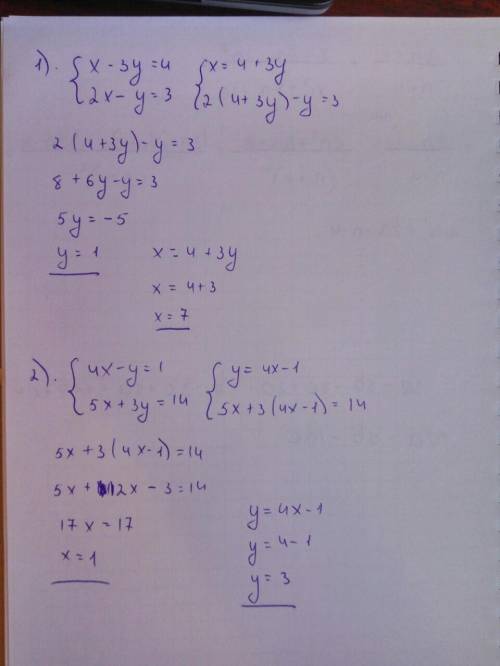 1). { x - 3y = 4 { x = 4 + 3y
2x - y = 3 2(4+3y) - y = 3
2(4+3y) - y = 3
8 + 6y - y = 3
5y = -5
y = 1 x = 4 + 3y
x = 4+3
x = 7
2). { 4x - y = 1 { y = 4x-1
5x + 3y = 14 5x + 3(4x-1) = 14
5x + 3(4x-1) = 14
5x + 12x - 3 = 14
17x = 17 y = 4x-1
x = 1 y = 4-1
y = 3